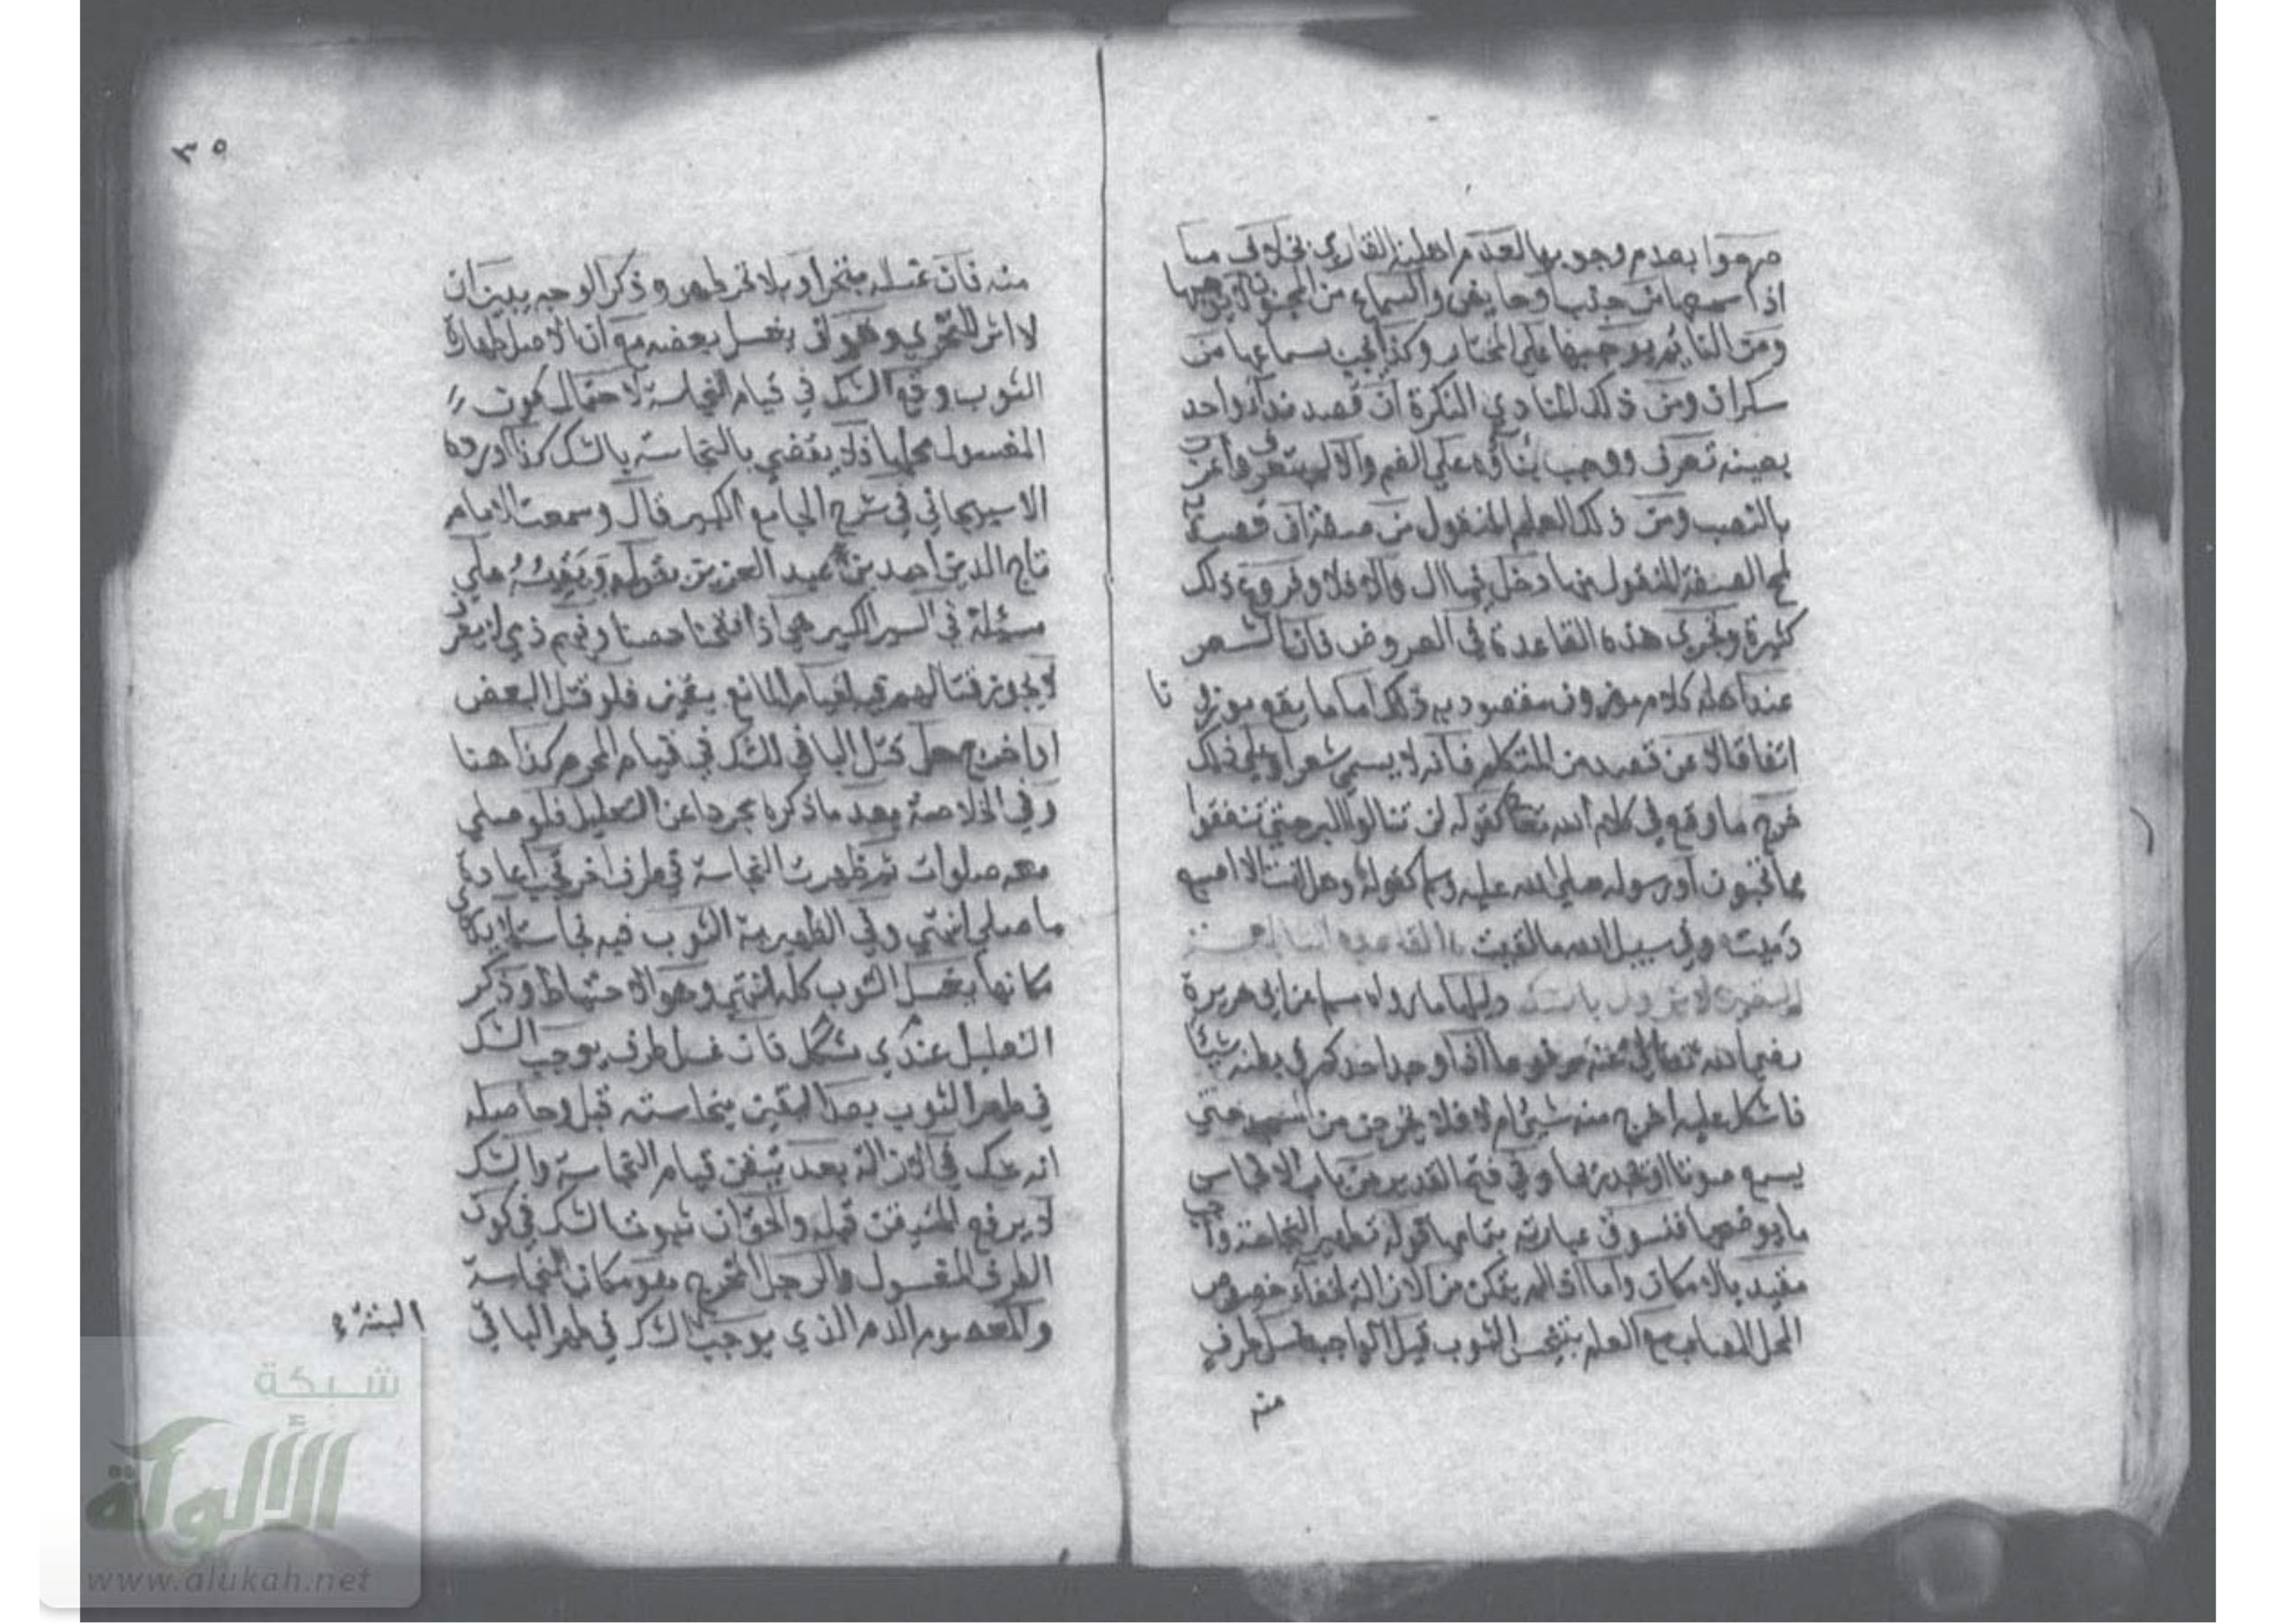 صرحوا بعدم وجوبها لعدم اهلية القاري بخلاف ما
اذا سمعها من جنب او حايض والسماع من المجنون لا يوجبها
ومن النايم يوجبها علي المختار وكذا تجب بسماعها من
سكران ومن ذلك المنادي النكرة ان قصد نداء واحد
بعينه تعرف ووجب بناؤه علي الضم والا لم يتعرف واعرب
بالنصب ومن ذلك العلم المنقول من صفة ان قصد به
لمح الصفة المنقول منها دخل فيه ال والا فلا وفروع ذلك
كثيرة وتجري هذه القاعدة في العروض فان الشعر
عند اهله كلام موزون مقصود به ذلك اما ما يقع موزونا
اتفاقا لا عن قصد من المتكلم فانه لا يسمي شعرا وعلي ذلك
خرج ما وقع في كلام الله تعا كقوله لن تنالوا البر حتي تنفقوا
مما تحبون او رسوله صلي الله عليه وسلم كقوله وهل انت الا اصبع
دميت وفي سبيل الله ما لقيت القاعدة الثالثة
اليقين لا يزول بالشك دليلها ما رواه مسلم عن ابي هريرة
رضي الله تعالي عنه مرفوعا اذا وجد احدكم في بطنه شيئا
فاشكل عليه اخرج منه شيئ ام لا فلا يخرجن من المسجد حتي
يسمع صوتا او يجد ريحا وفي فتح القدير من باب الانجاس
ما يوضحها فنسوق عبارته بتمامها قوله تطهير النجاسة واجب
مقيد بالامكان واما اذا لم يتمكن من الازالة لخفاء خصوص
المحل المصاب مع العلم بتنجس الثوب قيل الواجب غسل طرف
منه
٣٥
منه فان غسله بتحر او بلا تحر طهر وذكر الوجه يبين ان
لا اثر للتحري وهو ان يغسل بعضه مع ان الاصل طهارة
الثوب وقع الشك في قيام النجاسة لاحتمال كون
المغسول محلها فلا يقضي بالنجاسة بالشك كذا اورده
الاسبيجابي في شرح الجامع الكبير قال وسمعت الامام
تاج الدين احمد بن عبد العزيز يقوله ويقيسه علي
مسئلة في السير الكبير هي اذا فتحنا حصنا وفيهم ذمي لا يعرف
لا يجوز قتالهم لقيام المانع بيقين فلو قتل البعض
او اخرج حل قتل الباقي للشك في قيام المحرم كذا هنا
وفي الخلاصة بعد ما ذكره مجردا عن التعليل فلو صلي
معه صلوات ثم ظهرت النجاسة في طرف اخر تجب اعادة
ما صلي انتهي وفي الظهيرية الثوب فيه نجاسة لا يدري
مكانها يغسل الثوب كله انتهي وهو الاحتياط وذكر
التعليل عندي مشكل فان غسل طرف يوجب الشك
في طهر الثوب بعد اليقين بنجاسته قبل وحاصله
انه شك في الازالة بعد تيقن قيام النجاسة والشك
لا يرفع المتيقن قبله والحق ان ثبوت الشك في كون
الطرف المغسول والرجل المخرج هو مكان النجاسة
والمعصوم الدم الذي يوجب الشك في طهر الباقي
شبكة
الألوكة
www.alukah.net